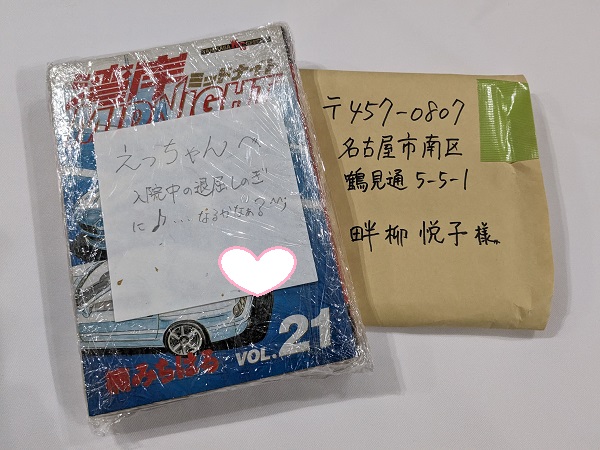 湾岸
ミッドナイト
MIDNIGHT
えっちゃんへ
入院中の退屈しのぎ
に♪...なるかなぁ?^^;
VOL.21
〒457-0807
名古屋市南区
鶴見通5-5-1
畔柳 悦子 様